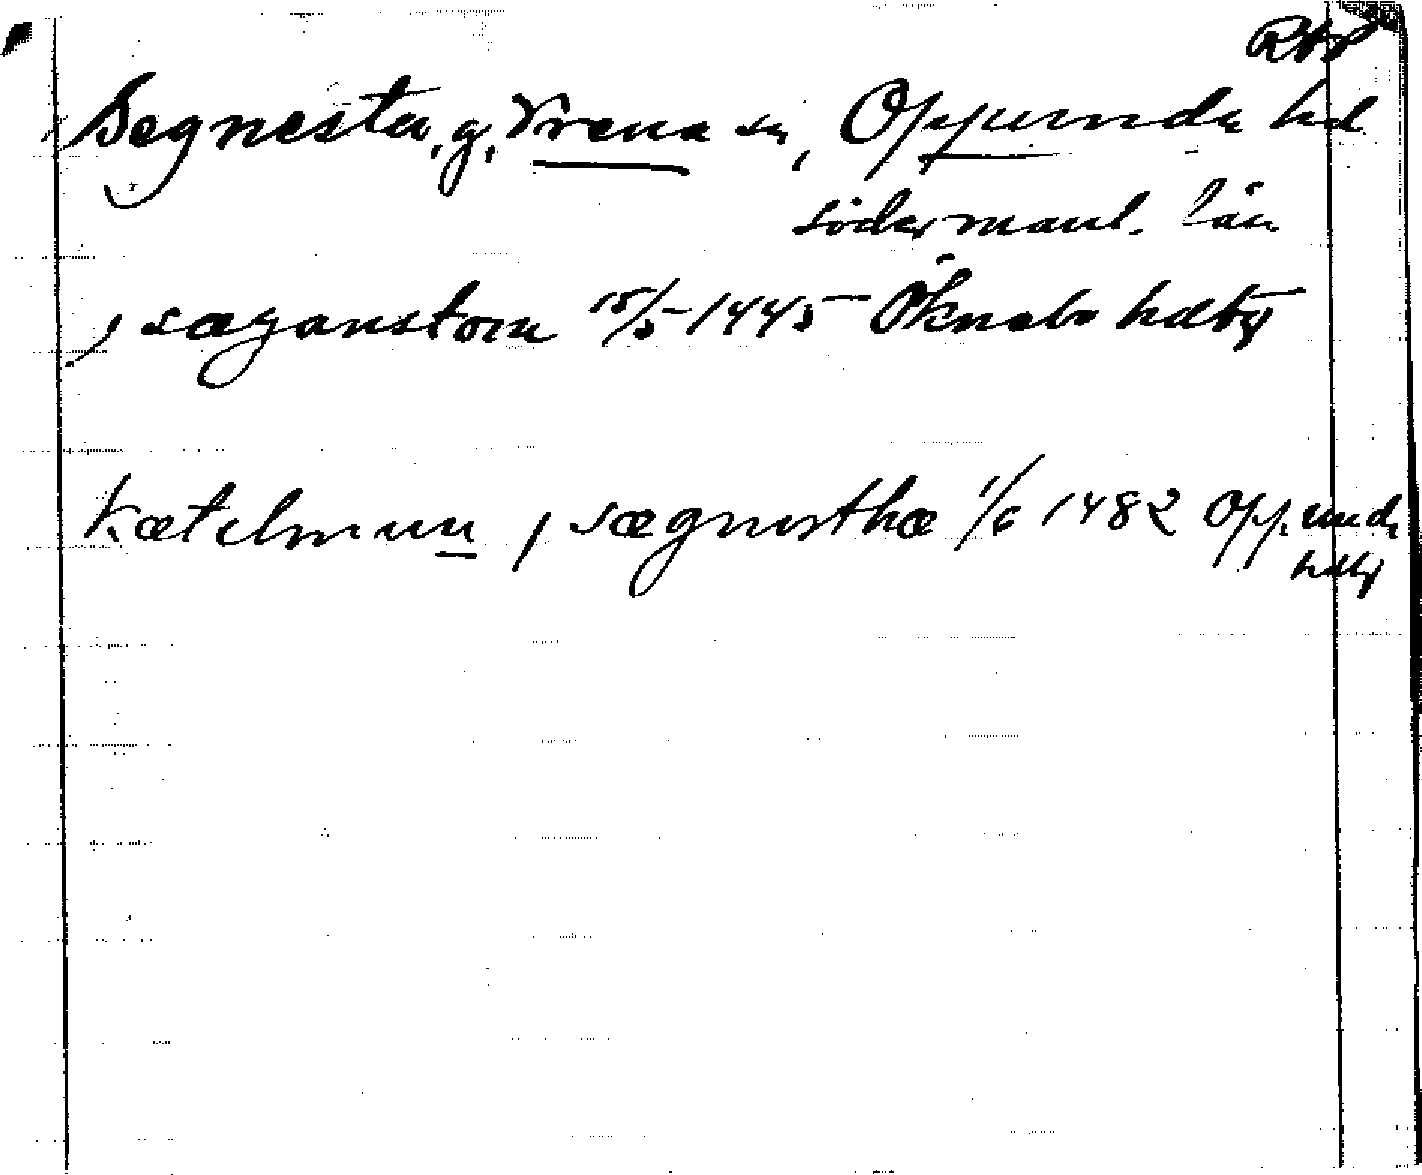 RAP
Segnesta, g, Vrena sn, Oppunda hd
södermanl. län
j sæganstom 15/5 1445 Öknebo hdbr
Kætelmun j sægnisthæ 1/6 1482 Oppunda
hdbr